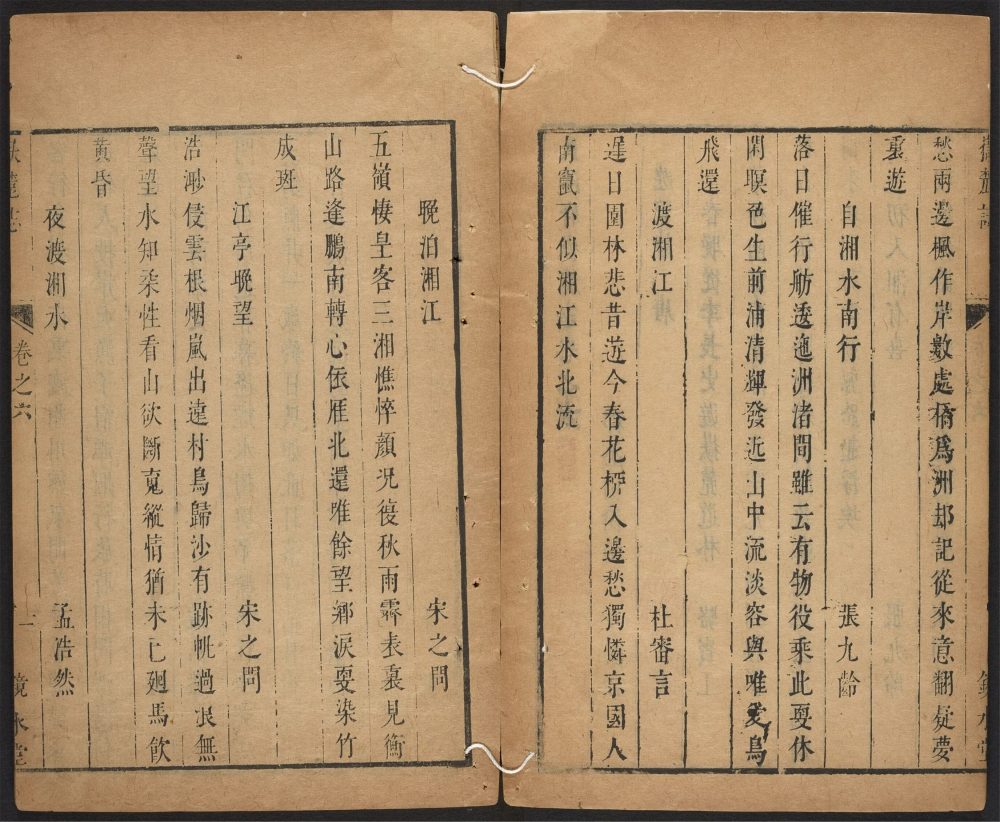 愁雨邊楓作岸數處橘為洲却記從來意翻疑夢
裏遊
自湘水南行 張九齡
落日催行舫逶迤洲渚間雖云有物役乘此更休
閑暝色生前浦清輝發近山中流淡容與唯愛鳥
飛還
渡湘江 杜審言
遲日園林悲昔遊今春花柳入邊愁獨憐京國人
南竄不似湘江水北流
晚泊湘江 宋之問
五嶺棲皇客三湘憔悴顏況復秋雨霽表裏見衡
山路逢鵬南轉心依雁北還唯餘望鄉淚更染竹
成斑
江亭晚望 宋之問
浩渺侵雲根烟嵐出遠村鳥歸沙有跡帆過浪無
聲望水知柔性看山欲斷䰟縱情猶未已廻馬飲
黃昏
夜渡湘水 孟浩然
卷之六 鏡水堂